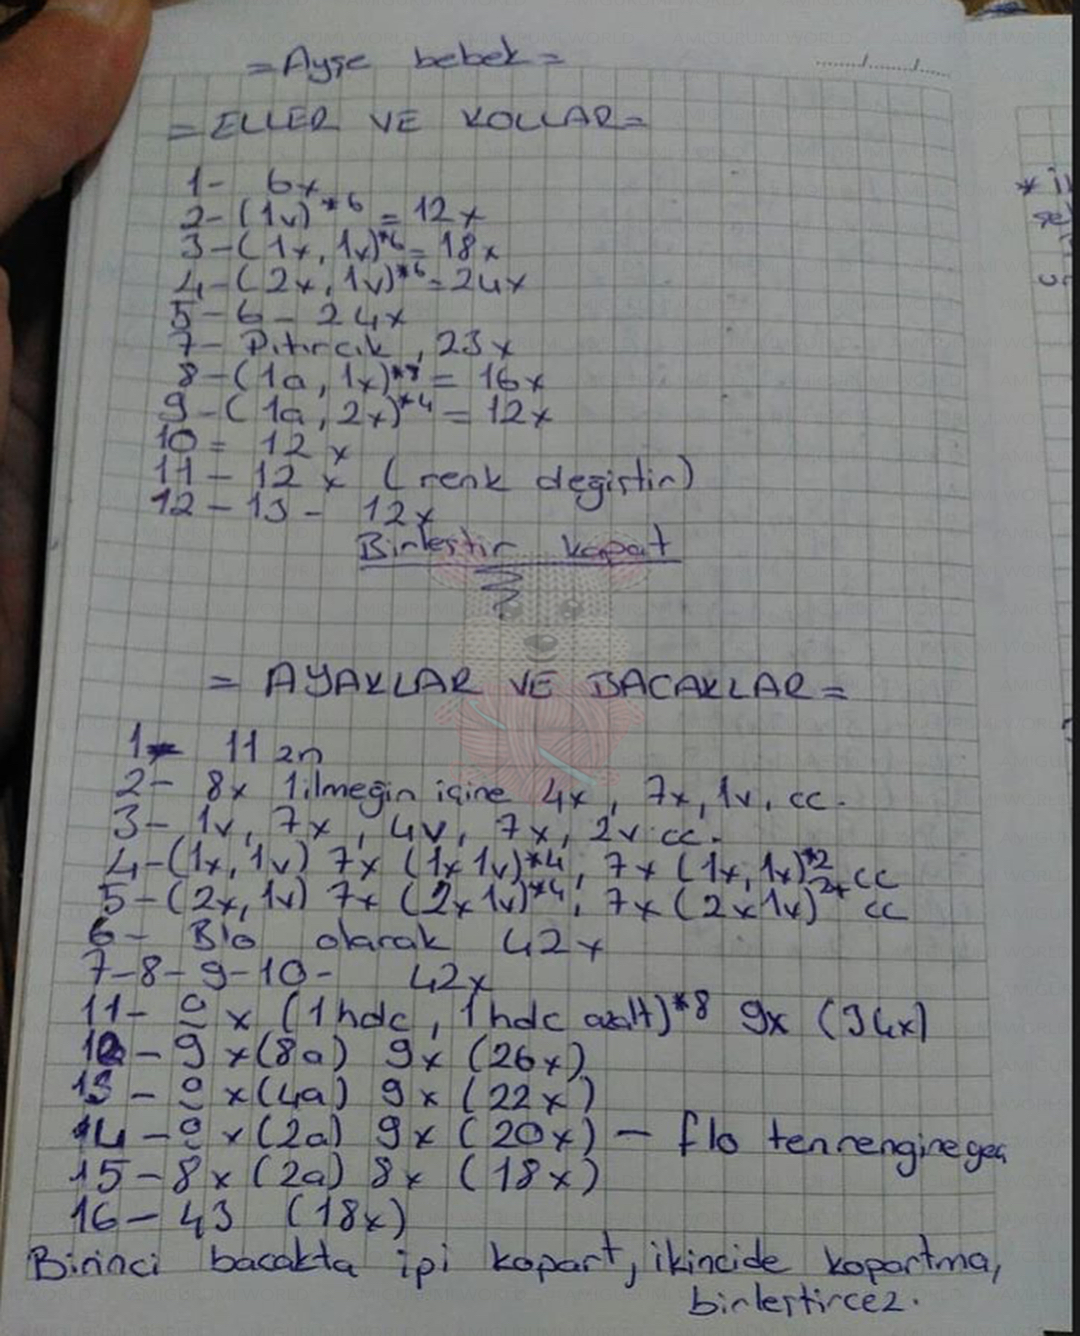 = Ayşe bebek =
= ELLER VE KOLLAR =
1- 6x
2-(1v)*6 = 12x
3-(1x, 1v)*6 = 18x
4-(2x, 1v)*6 = 24x
5-6- 24x
7- Pıtırcık, 23x
8-(1a, 1x)*8 = 16x
9-(1a, 2x)*4 = 12x
10= 12x
11- 12x (renk değiştir)
12-13- 12x
Birleştir kapat
= AYAKLAR VE BACAKLAR =
1- 11 zn
2- 8x 1ilmeğin içine 4x, 7x, 1v, cc.
3- 1v, 7x, 4v, 7x, 2v cc.
4-(1x, 1v) 7x (1x 1v)*4, 7x (1x, 1v)*2 cc
5-(2x, 1v) 7x (2x 1v)*4, 7x (2x 1v)2x cc
6- Blo olarak 42x
7-8-9-10- 42x
11- 9x (1hdc, 1hdc azalt)*8 9x (34x)
12- 9x(8a) 9x (26x)
13- 9x(4a) 9x (22x)
14- 9x(2a) 9x (20x) - flo ten rengine geç
15- 8x (2a) 8x (18x)
16- 43 (18x)
Birinci bacakta ipi kopart, ikincide kopartma,
birleştircez.